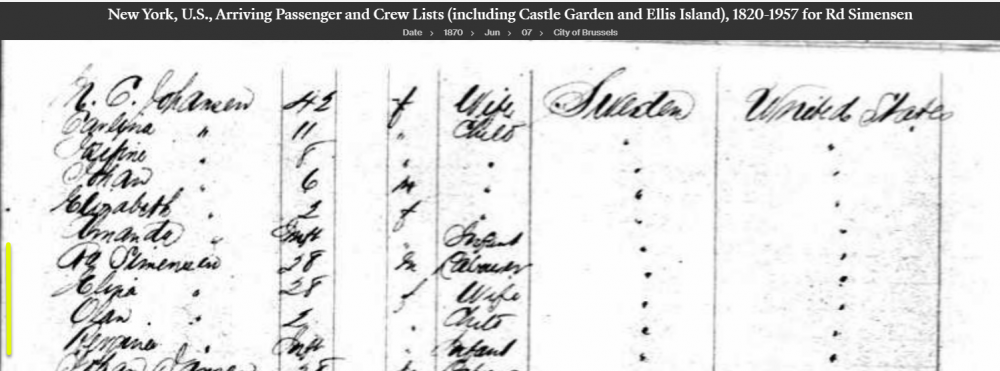 New York, U.S., Arriving Passenger and Crew Lists (including Castle Garden and Ellis Island), 1820-1957 for Rd Simensen
Date > 1870 > Jun > 07 > City of Brussels
N. C. Johansen 42 f Wife Sweden United States
Carolina " 11 " Child " "
" 8 " " " "
Johan " 6 m " " "
Elizabeth " 2 f " " "
Amanda " Inft " Infant " "
Rd Simensen 28 m Labourer " "
Eliza " 28 f Wife " "
Olan " 2 " Child " "
" Inft " Infant " "
Johan 28